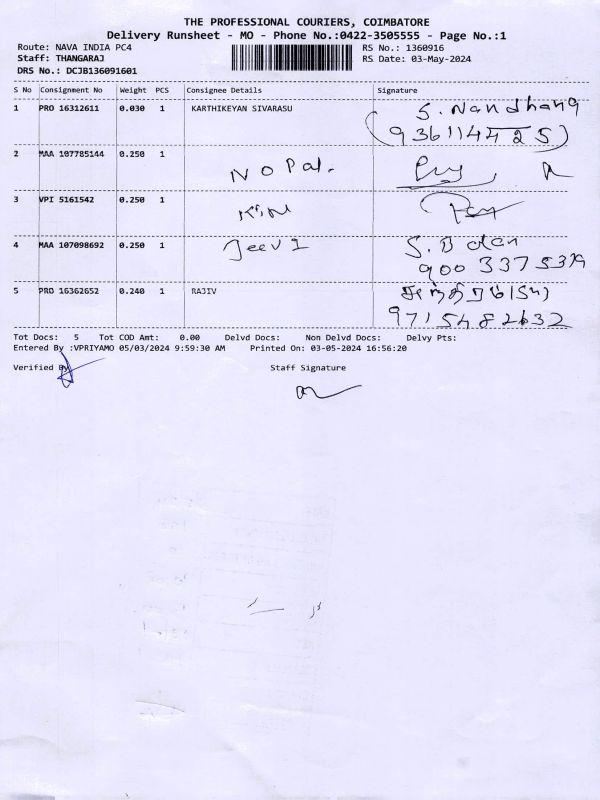 THE PROFESSIONAL COURIERS, COIMBATORE
Delivery Runsheet - MO - Phone No.:0422-3505555 - Page No.:1
Route: NAVA INDIA PC4 RS No.: 1360916
Staff: THANGARAJ RS Date: 03-May-2024
DRS No.: DCJB136091601
S No Consignment No Weight PCS Consignee Details Signature
1 PRO 16312611 0.030 1 KARTHIKEYAN SIVARASU S. Nandhana
2 MAA 107785144 0.250 1 Nopal.
3 VPI 5161542 0.250 1
4 MAA 107098692 0.250 1 S.B
900 337 5379
5 PRO 16362652 0.240 1 RAJIV
9715482632
Tot Docs: 5 Tot COD Amt: 0.00 Delvd Docs: Non Delvd Docs: Delvy Pts:
Entered By :VPRIYAMO 05/03/2024 9:59:30 AM Printed On: 03-05-2024 16:56:20
Verified By Staff Signature